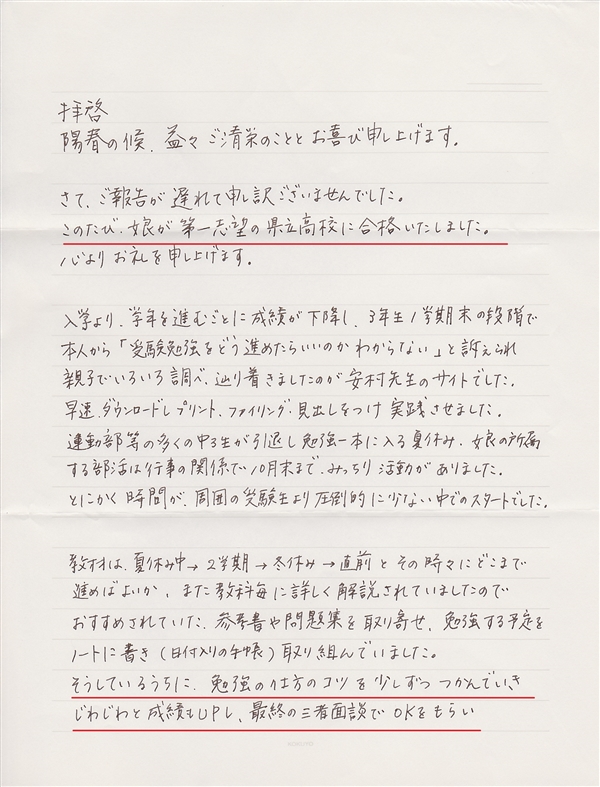 拝啓
陽春の候、益々ご清栄のこととお喜び申し上げます。
さて、ご報告が遅れて申し訳ございませんでした。
このたび、娘が第一志望の県立高校に合格いたしました。
心よりお礼を申し上げます。
入学より、学年を進むごとに成績が下降し、3年生1学期末の段階で
本人から「受験勉強をどう進めたらいいのかわからない」と訴えられ
親子でいろいろ調べ、辿り着きましたのが安村先生のサイトでした。
早速、ダウンロードしプリント、ファイリング、見出しをつけ実践させました。
運動部等の多くの中3生が引退し勉強一本に入る夏休み、娘の所属
する部活は行事の関係で10月末まで、みっちり活動がありました。
とにかく時間が、周囲の受験生より圧倒的に少ない中でのスタートでした。
教材は、夏休み中→2学期→冬休み→直前とその時々にどこまで
進めばよいか、また教科毎に詳しく解説されていましたので
おすすめされていた、参考書や問題集を取り寄せ、勉強する予定を
ノートに書き(日付入りの手帳)取り組んでいました。
そうしているうちに、勉強の仕方のコツを少しずつつかんでいき
じわじわと成績もUPし、最終の三者面談でOKをもらい
KOKUYO